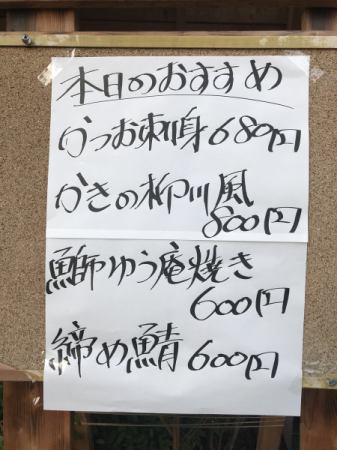 本日のおすすめ
かつお刺身680円
かきの柳川風
800円
鰤ゆう庵焼き
600円
締め鯖600円